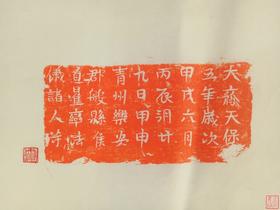 大齋天保
五年歲次
甲戌六月
丙辰朔廿
九日甲申
青州樂安
郡般縣侯
道暹率法
儀諸人等